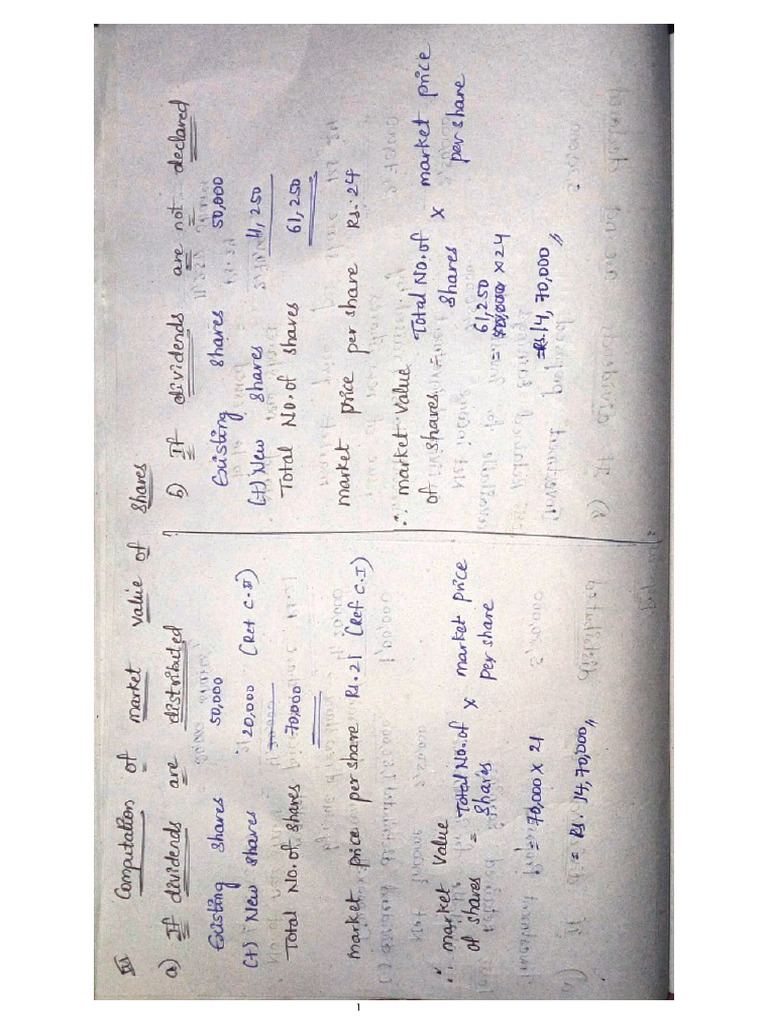 III Computation of market value of shares
a) If dividends are distributed
Existing shares 50,000
(+) New shares 20,000 (Ref C-II)
Total No. of shares 70,000
market price per share Rs. 21 (Ref C.I)
∴ market value of shares = Total No. of shares x market price per share
= 70,000 x 21
= Rs. 14,70,000/,
b) If dividends are not declared
Existing shares 50,000
(+) New shares 11,250
Total No. of shares 61,250
market price per share Rs. 24
∴ market value of shares = Total No. of shares x market price per share
= 61,250 x 24
= Rs. 14,70,000/,
1